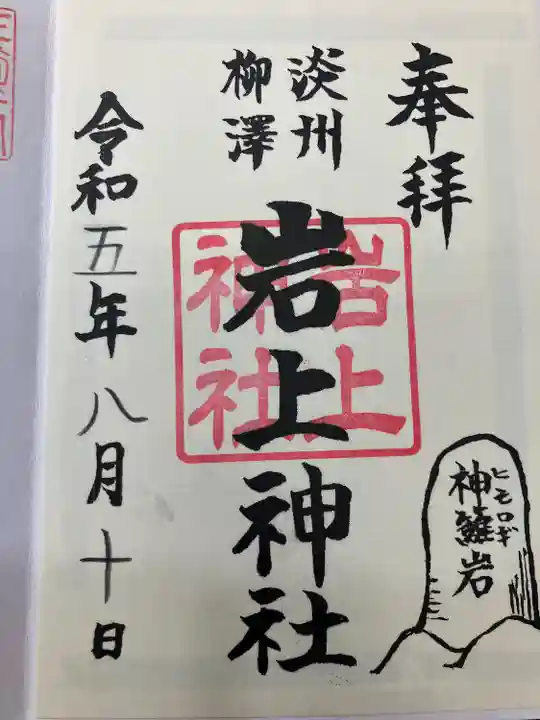 奉拝
淡州
柳澤
岩上神社
岩上
神社
令和五年八月十日
神籬岩
ヒモロギ